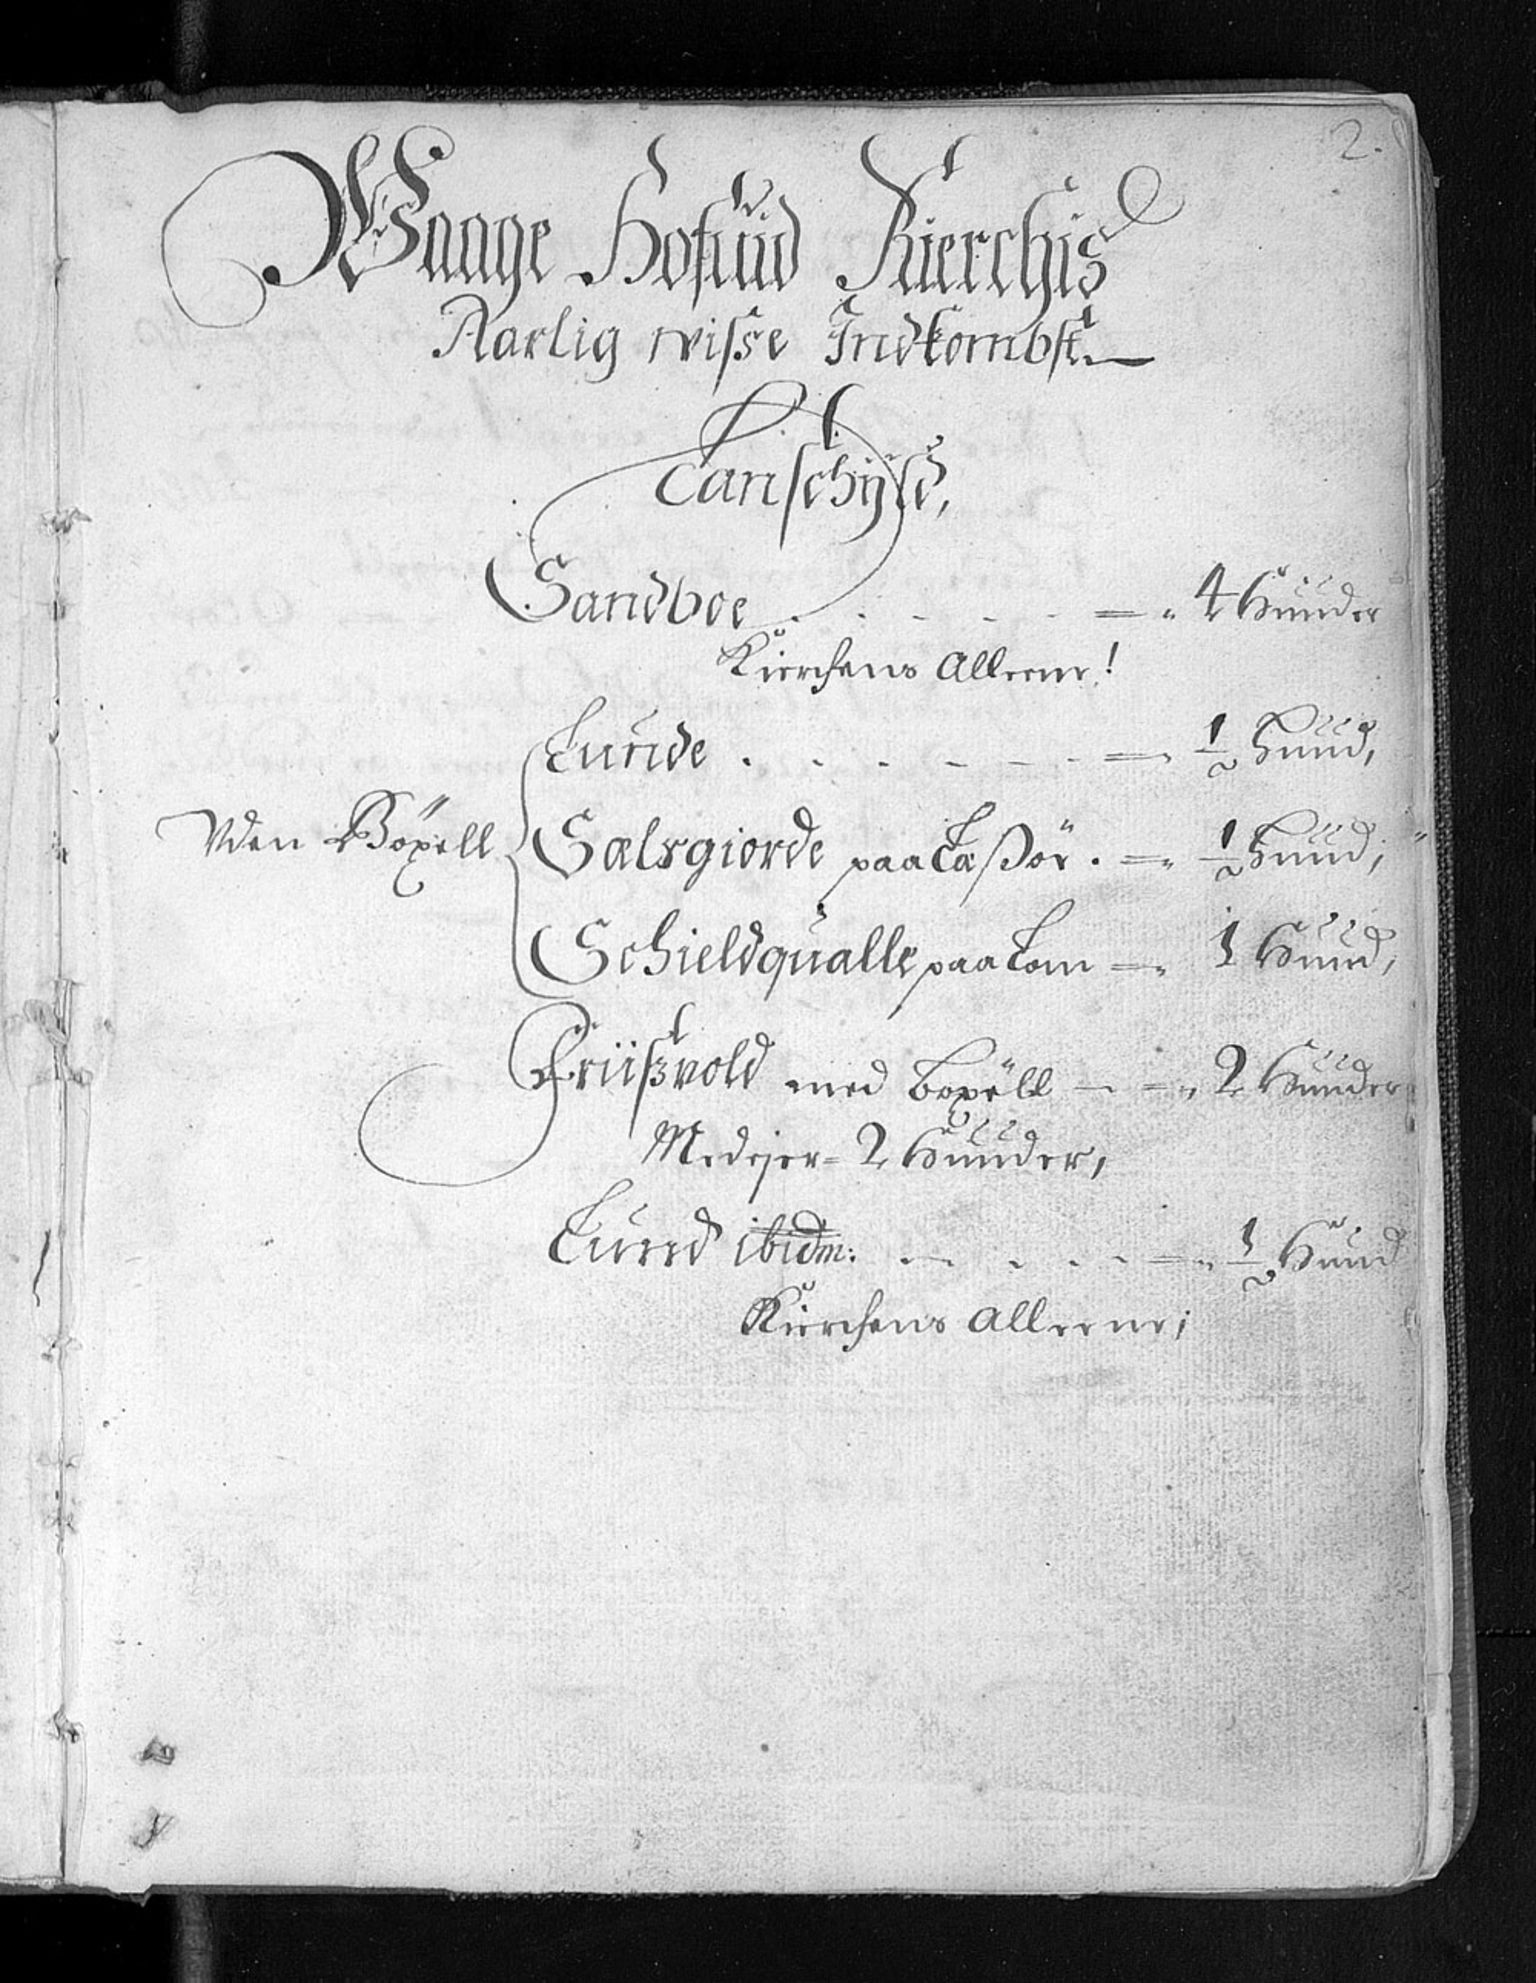 2.
Waage Hofuid Kierchis
Aarlig wisse Indkombst
Lanschyld,
Sandboe . . . . . = 4 Hunder
Kierchens Alleene!
Lunde . . . . . = ½ Hund,
Vden Böxell Sælsgiorde paa Læssör . = ½ Hund,
Schieldqualle paa Lom = 1 Hund,
Friisvold med boxell - = 2 Hunder
Medejer = 2 Hunder,
Lund ibidm: . . . . = ½ Hund
Kierchens Alleene;